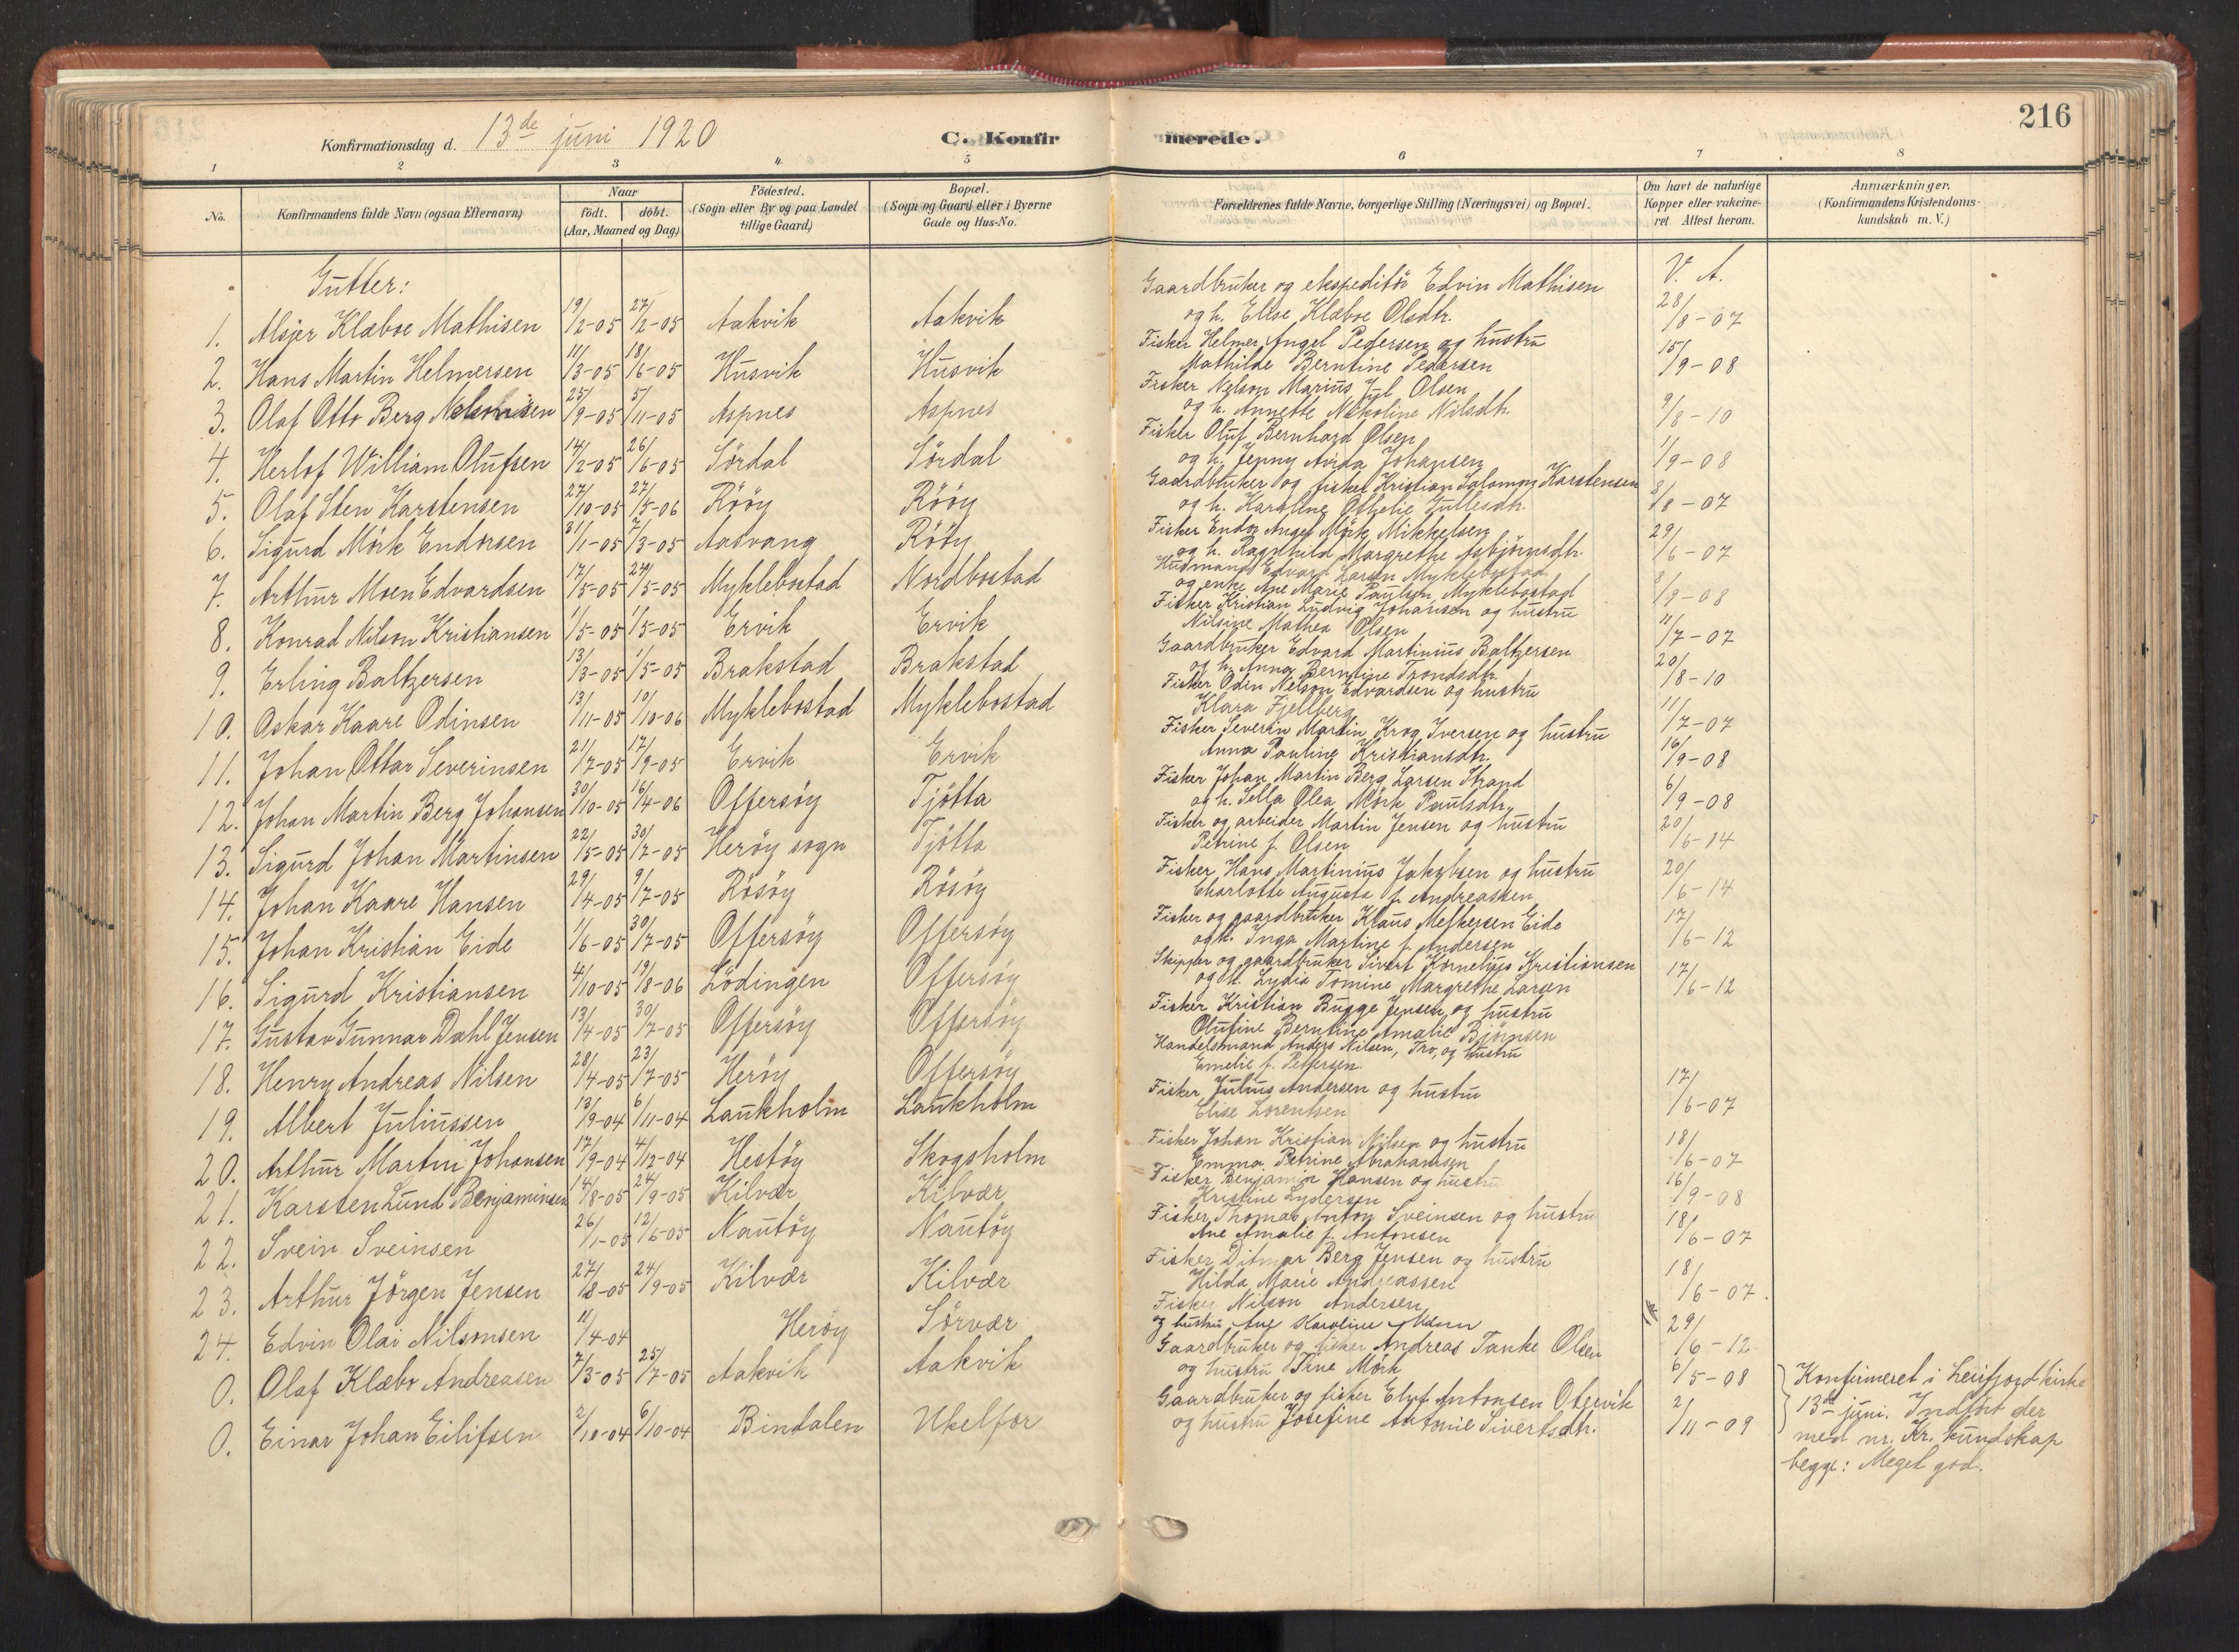 216
Konfirmationsdag d. 13de juni 1920 C. Konfirmerede.
1 2 3 4 5 6 7 8
No. Konfirmandens fulde Navn (ogsaa Efternavn) Naar födt. döbt. (Aar, Maaned og Dag) Födested. (Sogn eller By og paa Landet tillige Gaard) Bopæl. (Sogn og Gaard eller i Byerne Gade og Hus-No. Forældrenes fulde Navne, borgerlige Stilling (Næringsvei) og Bopæl. Om havt de naturlige Kopper eller vakcineret Attest herom. Anmærkninger. (Konfirmandens Kristendomskundskab m. V.)
Gutter: V. A.
1. Alsjer Klæboe Mathisen 19/2-05 27/2-05 Aakvik Aakvik Gaardbruker og ekspeditör Edvin Mathisen 28/8-07
og h. Elise Klæboe Olsdtr.
2. Hans Martin Helmersen 11/3-05 18/6-05 Husvik Husvik Fisker Helmer Angel Pedersen og hustru 15/9-08
Mathilde Berntine Pedersen
3. Olaf Otto Berg Nelsonsen 25/9-05 5/11-05 Aspnes Aspnes Fisker Nelson Marius Jul Olsen 9/8-10
og h. Annette Nikoline Nilsdtr.
4. Herlof William Olufsen 14/2-05 26/6-05 Sördal Sördal Fisker Oluf Bernhard Olsen 1/9-08
og h. Jenny Avida Johansen
5. Olaf Sten Karstensen 27/10-05 27/5-06 Rööy Rööy Gaardbruker og fisker Kristian Salomon Karstensen 8/8-07
og h. Karoline Othelie Tullesdtr.
6. Sigurd Mörk Endorsen 31/1-05 7/3-05 Aasvang Rööy Fisker Endor Angel Mörk Mikkelsen 29/6-07
og h. Ragnhild Margrethe Asbjörnsdtr.
7. Arthur Moen Edvardsen 17/5-05 24/5-05 Myklebostad Nordbostad Husmand Edvard Larsen Myklebostad 8/9-08
og enke Ane Marie Paulsen Myklebostad
8. Konrad Nilson Kristiansen 1/5-05 1/5-05 Ervik Ervik Fisker Kristian Ludvig Johansen og hustru 11/7-07
Nilsine Mathea Olsen
9. Erling Baltzersen 13/3-05 1/5-05 Brakstad Brakstad Gaardbruker Edvard Martinius Baltzersen 20/8-10
og h. Anna Berntine Trondsdtr.
10. Oskar Kaare Odinsen 13/11-05 10/10-06 Myklebostad Myklebostad Fisker Odin Nelson Edvardsen og hustru 11/7-07
Klara Fjellberg
11. Johan Ottar Severinsen 21/7-05 17/9-05 Ervik Ervik Fisker Severin Martin Krog Iversen og hustru 16/9-08
Anna Pauline Kristiansdtr.
12. Johan Martin Berg Johansen 30/10-05 16/4-06 Offersöy Tjötta Fisker Johan Martin Berg Larsen Strand 6/9-08
og h. Sella Olea Mörk Paulsdtr.
13. Sigurd Johan Martinsen 22/5-05 30/7-05 Heröy sogn Tjötta Fisker og arbeider Martin Jensen og hustru 20/6-14
Petrine f. Olsen
14. Johan Kaare Hansen 29/4-05 9/7-05 Rösöy Rösöy Fisker Hans Martinius Jakobsen og hustru 20/6-14
Charlotte Augusta f. Andreassen
15. Johan Kristian Eide 1/6-05 30/7-05 Offersöy Offersöy Fisker og gaardbruker Klaus Meftersen Eide 17/6-12
og h. Inga Martine f. Andersen
16. Sigurd Kristiansen 4/10-05 19/8-06 Lödingen Offersöy Skipper og gaardbruker Sivert Kornelius Kristiansen 17/6-12
og h. Lydia Tomine Margrethe Larsen
17. Gustav Gunnar Dahl Jensen 13/4-05 30/7-05 Offersöy Offersöy Fisker Kristian Bugge Jensen og hustru
Olufine Berntine Amalie Björnsen
18. Henry Andreas Nilsen 28/4-05 23/7-05 Heröy Offersöy Handelsmand Anders Nilsen, Tro, og hustru
Emelie f. Pettersen.
19. Albert Juliussen 13/9-04 6/11-04 Laukholm Laukholm Fisker Julius Andersen og hustru 17/6-07
Elise Lorentsen
20. Arthur Martin Johansen 17/9-04 4/12-04 Hestöy Skogsholm Fisker Johan Kristian Nilsen og hustru 18/6-07
Emma Petrine Abrahamsen
21. Karsten Lund Benjaminsen 14/8-05 24/9-05 Kilvær Kilvær Fisker Benjamin Hansen og hustru 16/9-08
Kristine Lydersen
22. Svein Sveinsen 26/1-05 12/6-05 Nautöy Nautöy Fisker Thomas Anton Sveinsen og hustru 18/6-07
Ane Amalie f. Antonsen
23. Arthur Jörgen Jensen 27/8-05 24/9-05 Kilvær Kilvær Fisker Ditmar Berg Jensen og hustru 18/6-07.
Hilda Marie Andreassen
24. Edvin Olai Nilsonsen 11/4-04 Heröy Sörvær Fisker Nilson Andersen 29/6-12
og hustru Ane Karoline
0. Olaf Klæbo Andreasen 7/3-05 25/7-05 Aakvik Aakvik Gaardbruker og fisker Andreas Tanke Olsen 6/5-08 Konfirmeret i Leirfjord kirke
og hustru Trine Mörk 13de juni. Indfört der
0. Einar Johan Eilifsen 2/10-04 6/10-04 Bindalen Ukelfor Gaardbruker og fisker Antonsen 2/11-09 med nr. Kr. kundskap
og hustru Josefine Antonie Sivertsdtr. begge: Meget god.